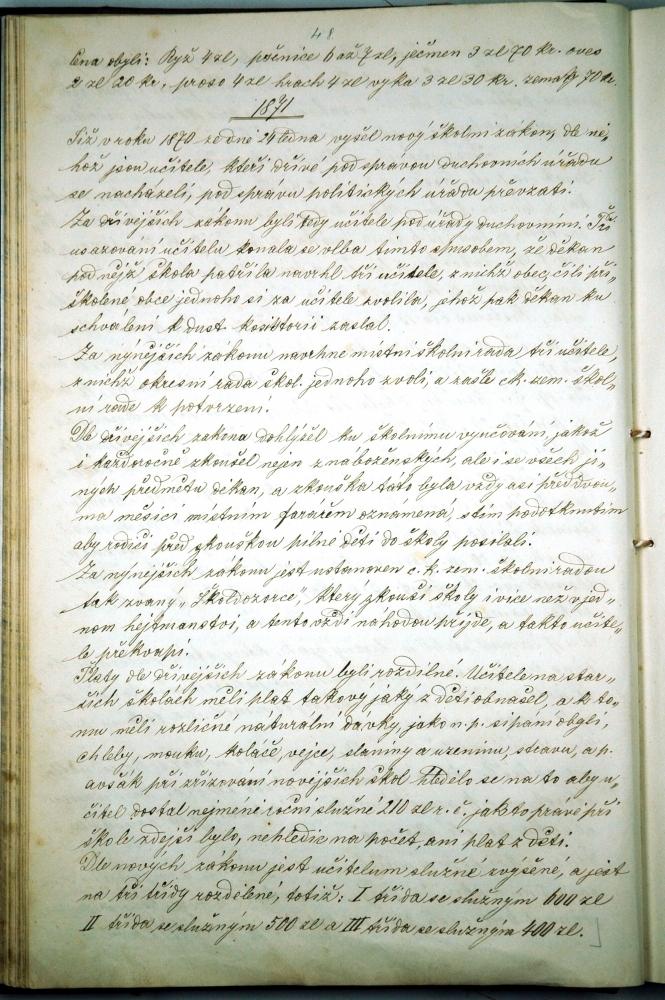 48.
Cena obylí: Ryž 4 zl, pšenice 6 až 7 zl, ječmen 3 zl 70 kr. oves
2 zl 20 kr, proso 4 zl hrach 4 zl vyka 3 zl 30 kr. zemáky 70 kr.
1871
Již v roku 1870 ze dne 24 ledna vyšel nový školní zákon, dle ně„
hož jsou učitele, kteří dřívé pod správou duchovních úřadu
se nacházeli, pod spravu politických úřadu převzati.
Za dřívejších zakonu byli tedy učitele pod úřady duchovními. Při
usazovaní učitelu konala se volba timto spusobem, že děkan
pod nějž škola patřila navrhl tři učitele, z nichž obec, čili při„
školené obce jednoho si za učitele zvolila, jehož pak děkan ku
schválení k dust. konsistorii zaslal.
Za nýnějších zákonu navrhne místní školní rada tři učitele,
z nichž okresní rada škol. jednoho zvoli, a zašle c.k. zem. škol„
ní radě k potvrzení.
Dle dřívejších zakona dohlýžel ku školnímu vyučování, jakož
i každoročně zkoušel nejen z náboženských, ale i se všech ji„
ných předmětu děkan, a zkouška tato byla vždy asi před dvou„
ma měsíci místním farářem oznámena, s tím podotknutím
aby rodiči před zkouškou pilné děti do školy posílali.
Za nýnějších zakonu jest ustanoven c. k. zem. školní radou
tak zvaný „Školdozorce", který zkouší školy i vice než v jed„
nom hejtmanství, a tento vždi náhodou přijde, a takto učite„
le překvapí.
Platy dle dřívejších zákonu byli rozdilné. Učitele na star„
ších školách měli plat takový jaký z dětí obnašel, a k to„
mu měli rozličné naturální davky, jako n. p. sipaní obylí,
chleby, mouku, koláče, vejce, slaniny a uzeninu, stravu, a p.
avšák při zřizovaní novějších škol hledělo se na to aby u„
čitel dostal nejméně roční služné 210 zl r. č. jakto právě při
škole zdejší bylo, nehledíc na počet ani plat z dětí.
Dle nových zákonu jest učitelum služné zvýšené, a jest
na tři třídy rozdělené, totiž: I třída se služným 600 zl
II třída se služným 500 zl a III třída se služným 400 zl.